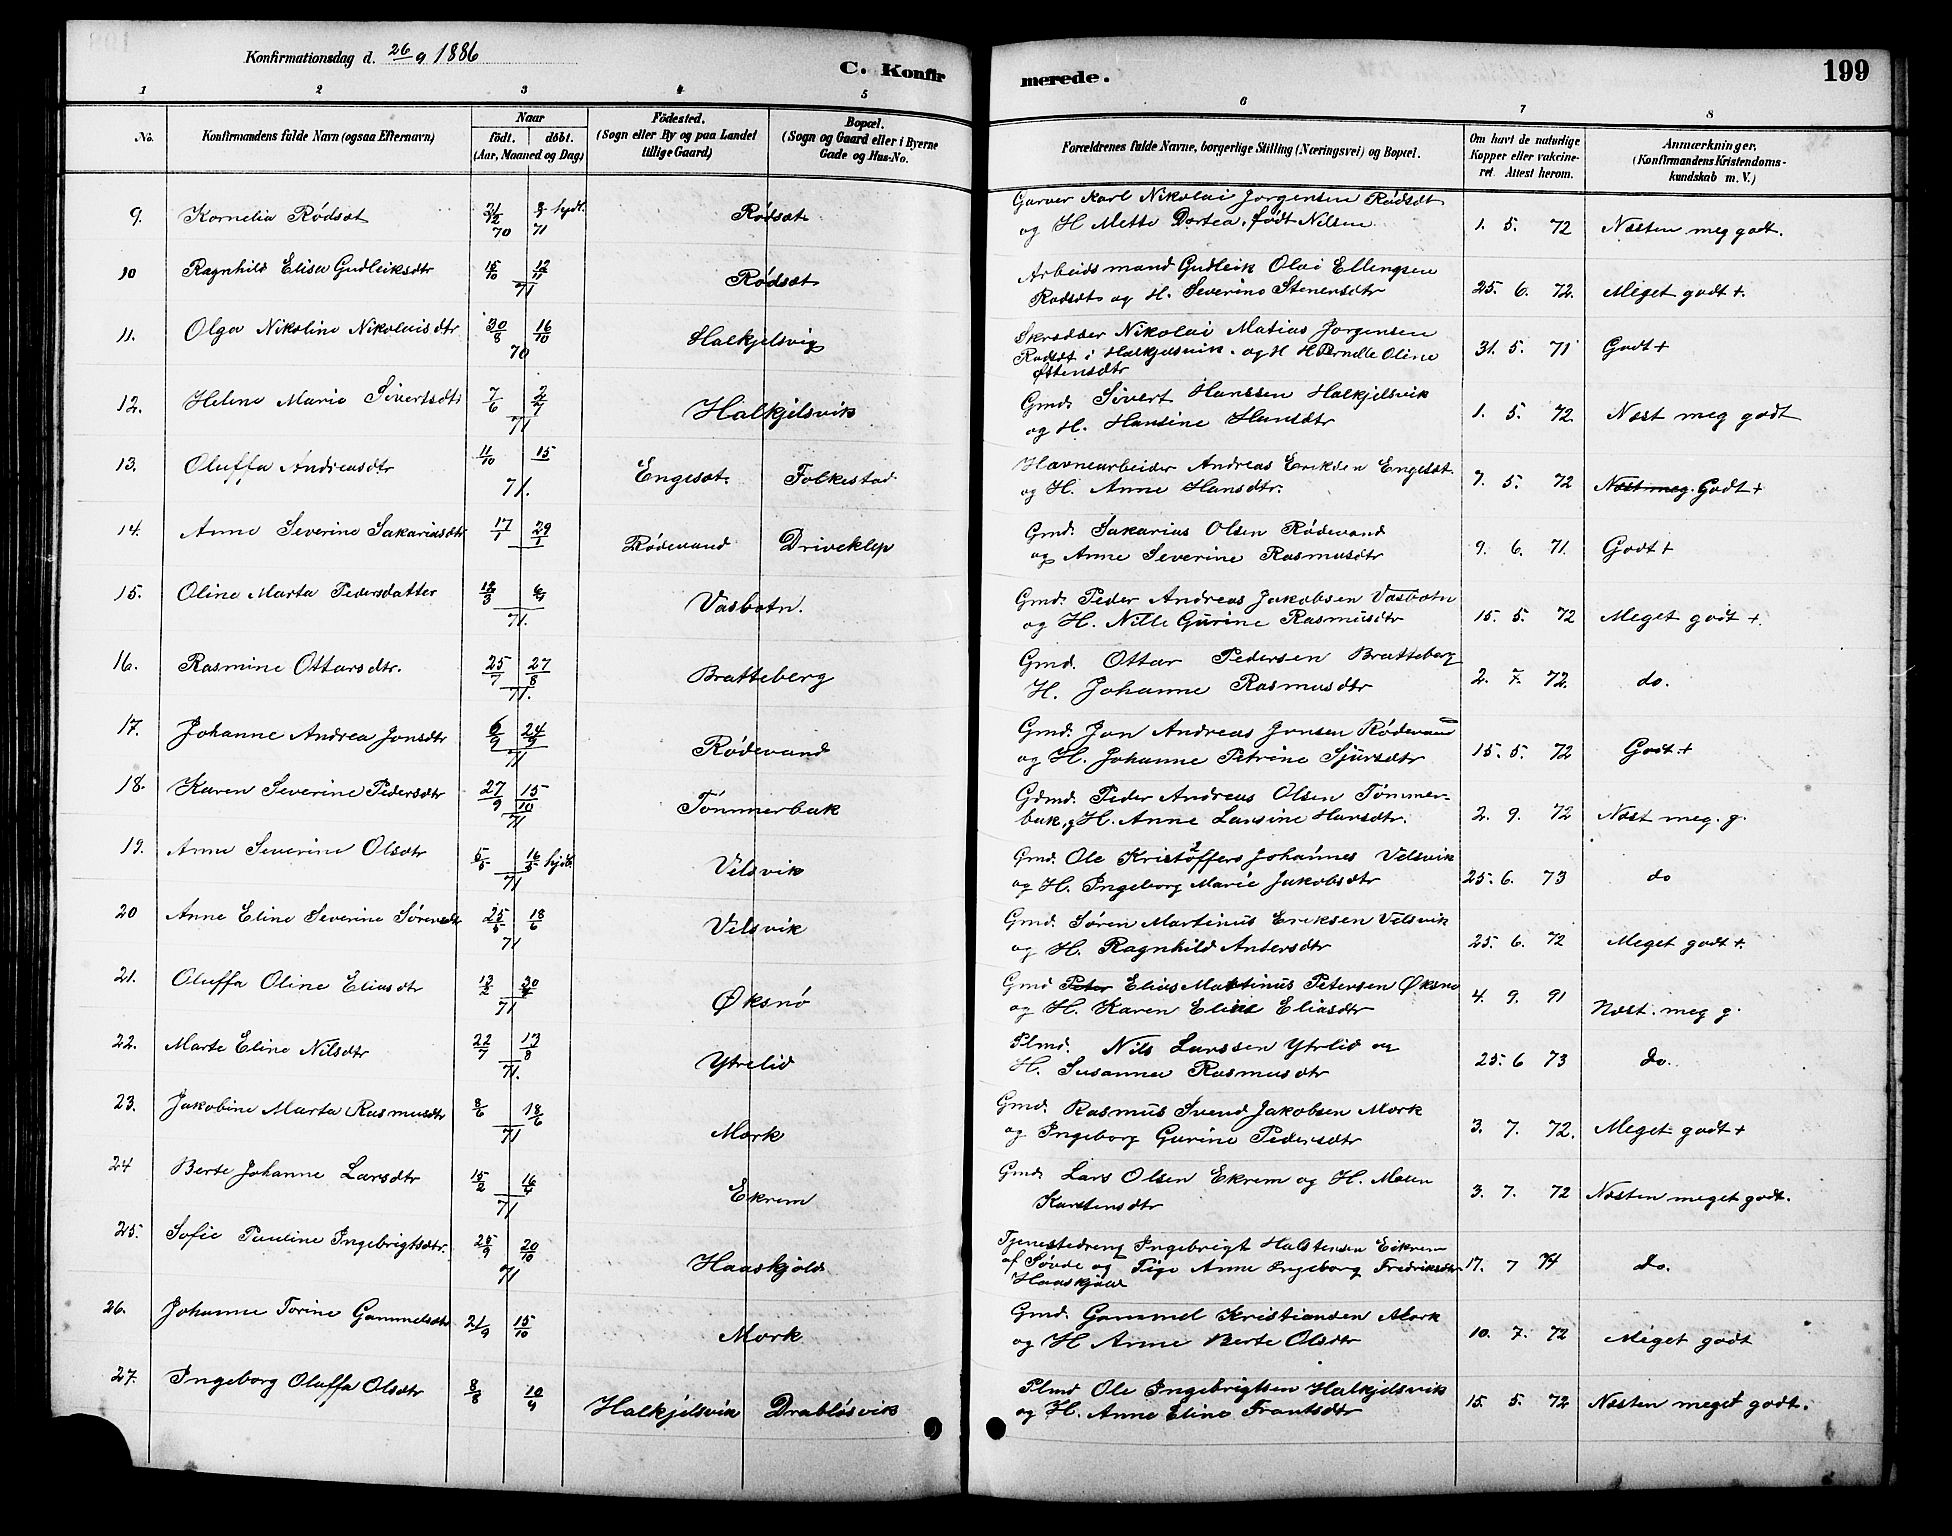 Konfirmationsdag d. 26/9 1886
C. Konfir
merede.
199
1 2 3 4 5 6 7 8
No.
Konfirmandens fulde Navn (ogsaa Efternavn)
Naar
födt. döbt.
(Aar, Maaned og Dag)
Födested.
(Sogn eller By og paa Landet
tillige Gaard)
Bopæl.
(Sogn og Gaard eller i Byerne
Gade og Hus-No.
Forældrenes fulde Navne, borgerlige Stilling (Næringsvei) og Bopæl.
Om havt de naturlige
Kopper eller vakcine-
ret. Attest herom.
Anmærkninger.
(Konfirmandens Kristendoms-
kundskab m. V.)
9. Kornelia Rødsæt 70 71 Rødsæt
Garver Karl Nikolai Jorgensen Rødsæt
og H Mette Dortea, født Nilsen 1. 5. 72 Næsten meg godt.
10 Ragnhild Elisa Gudleiksdtr 15/10 12/11 71 Rødsæt
Arbeidsmand Gudleik Olai Ellengsen
Rødsæt og H. Severine Stenersdtr 25. 6. 72. Meget godt +.
11. Olga Nikoline Nikolaisdtr 30/8 16/10 70 Halkjelsvig
Skrædder Nikolai Matias Jorgensen
Rødsæt i Halkjelsvik. og H Oline
Østensdtr 31. 5. 71 Godt +
12. Helene Marie Sivertsdtr 7/6 2/7 71 Halkjelsvik
Gmd. Sivert Hanssen Halkjelsvik
og H. Hansine Hansdtr 1. 5. 72 Næst meg godt
13. Oluffa Andreasdtr 11/10 15 71. Engesæt. Folkestad
Havnearbeider Andreas Eriksen Engesæt
og H. Anne Hansdtr. 7. 5. 72 Næst meg. Godt +
14. Anne Severine Sakariasdtr 17/1 29/1 Rødevand Driveklep
Gmd. Sakarias Olsen Rødevand
og Anne Severine Rasmusdtr 9. 6. 71. Godt +
15. Oline Marta Pedersdatter 71. Vasbotn.
Gmd. Peder Andreas Jakobsen Vasbotn
og H. Nille Gurine Rasmusdtr 15. 5. 72 Meget godt +.
16. Rasmine Ottarsdtr. 25/7 27/8 71. Bratteberg
Gmd. Ottar Pedersen Bratteberg
H. Johanne Rasmusdtr 2. 7. 72. do.
17. Johanne Andrea Jonsdtr 6/9 24/9 71 Rødevand
Gmd. Jon Andreas Jonsen Rødevand
og H. Johanne Petrine Sjursdtr 15. 5. 72 Godt +
18. Karen Severine Pedersdtr 27/9 15/10 71 Tømmerbak
Gdmd. Peder Andreas Olsen Tømmer-
bak, og H. Anne Lausine Hansdtr. 2. 9. 72 Næst meg. g.
19. Anne Severine Olsdtr 5/5 16/5 hjdt 71 Velsvik
Gmd. Ole Kristoffers Johannes Velsvik
og H. Ingeborg Marie Jakobsdtr 25. 6. 73 do
20 Anne Eline Severine Sørensdtr 25/5 18/6 71 Velsvik
Gmd. Søren Martinus Eriksen Velsvik
og H. Ragnhild Andersdtr 25. 6. 72 Meget godt +.
21. Oluffa Oline Eliasdtr 71 Øksnø
Gmd Peter Elias Martinus Petersen Øksnø
og H. Karen Eline Eliasdtr 4. 9. 91 Næst. meg g.
22. Marte Eline Nilsdtr 22/7 13/8 71. Ytrelid
Plmd. Nils Larssen Ytrlid og
H. Susanna Rasmusdtr 25. 6 73 do.
23. Jakobine Marta Rasmusdtr 8/6 18/6 71 Mork
Gmd. Rasmus Svend Jakobsen Mork
og Ingeborg Gurine Pedersdtr 3. 7. 72. Meget godt +
24 Berte Johanne Larsdtr 15/2 16/4 71 Ekrem
Gmd. Lars Olsen Ekrem og H. Maren
Karstensdtr 3. 7. 72 Næsten meget godt.
25. Sofie Pauline Ingebrigtsdtr. 25/9 20/10 71 Haaskjold
Tjenestedreng Ingebrigt Halstensen Eikrem
af Søvde og Pige Anne Ingeborg Fredriksdtr
Haaskjold 17. 7 74 do.
26. Johanne Torine Gammelsdtr 21/9 15/10 Mork
Gmd. Gammel Kristiansen Mork
og H Anne Berte Olsdtr 10. 7. 72 Meget godt
27. Ingeborg Oluffa Olsdtr 8/8 10/9 Halkjelsvik Drabløsvik
Plmd Ole Ingebrigtsen Halkjelsvik
og H. Anne Eline Frantsdtr 15. 5. 72 Næsten meget godt.